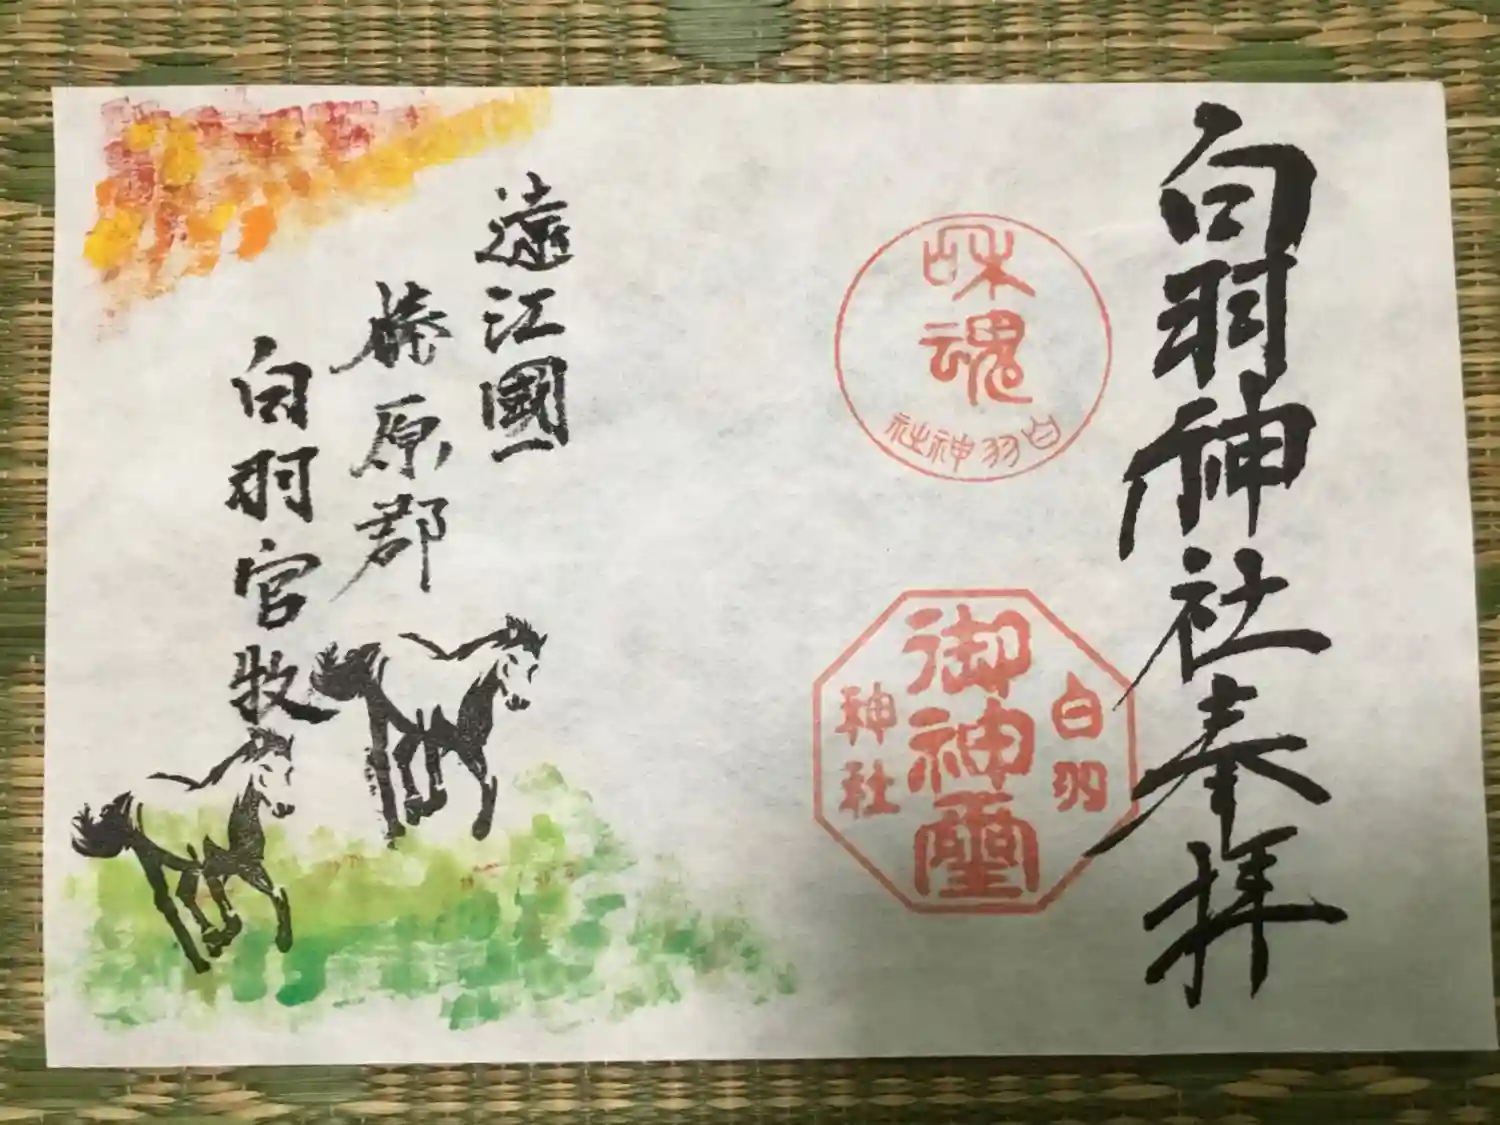 白羽神社奉拝
味魂
白羽神社
白羽
御神璽
神社
遠江國一
榛原郡
白羽官牧